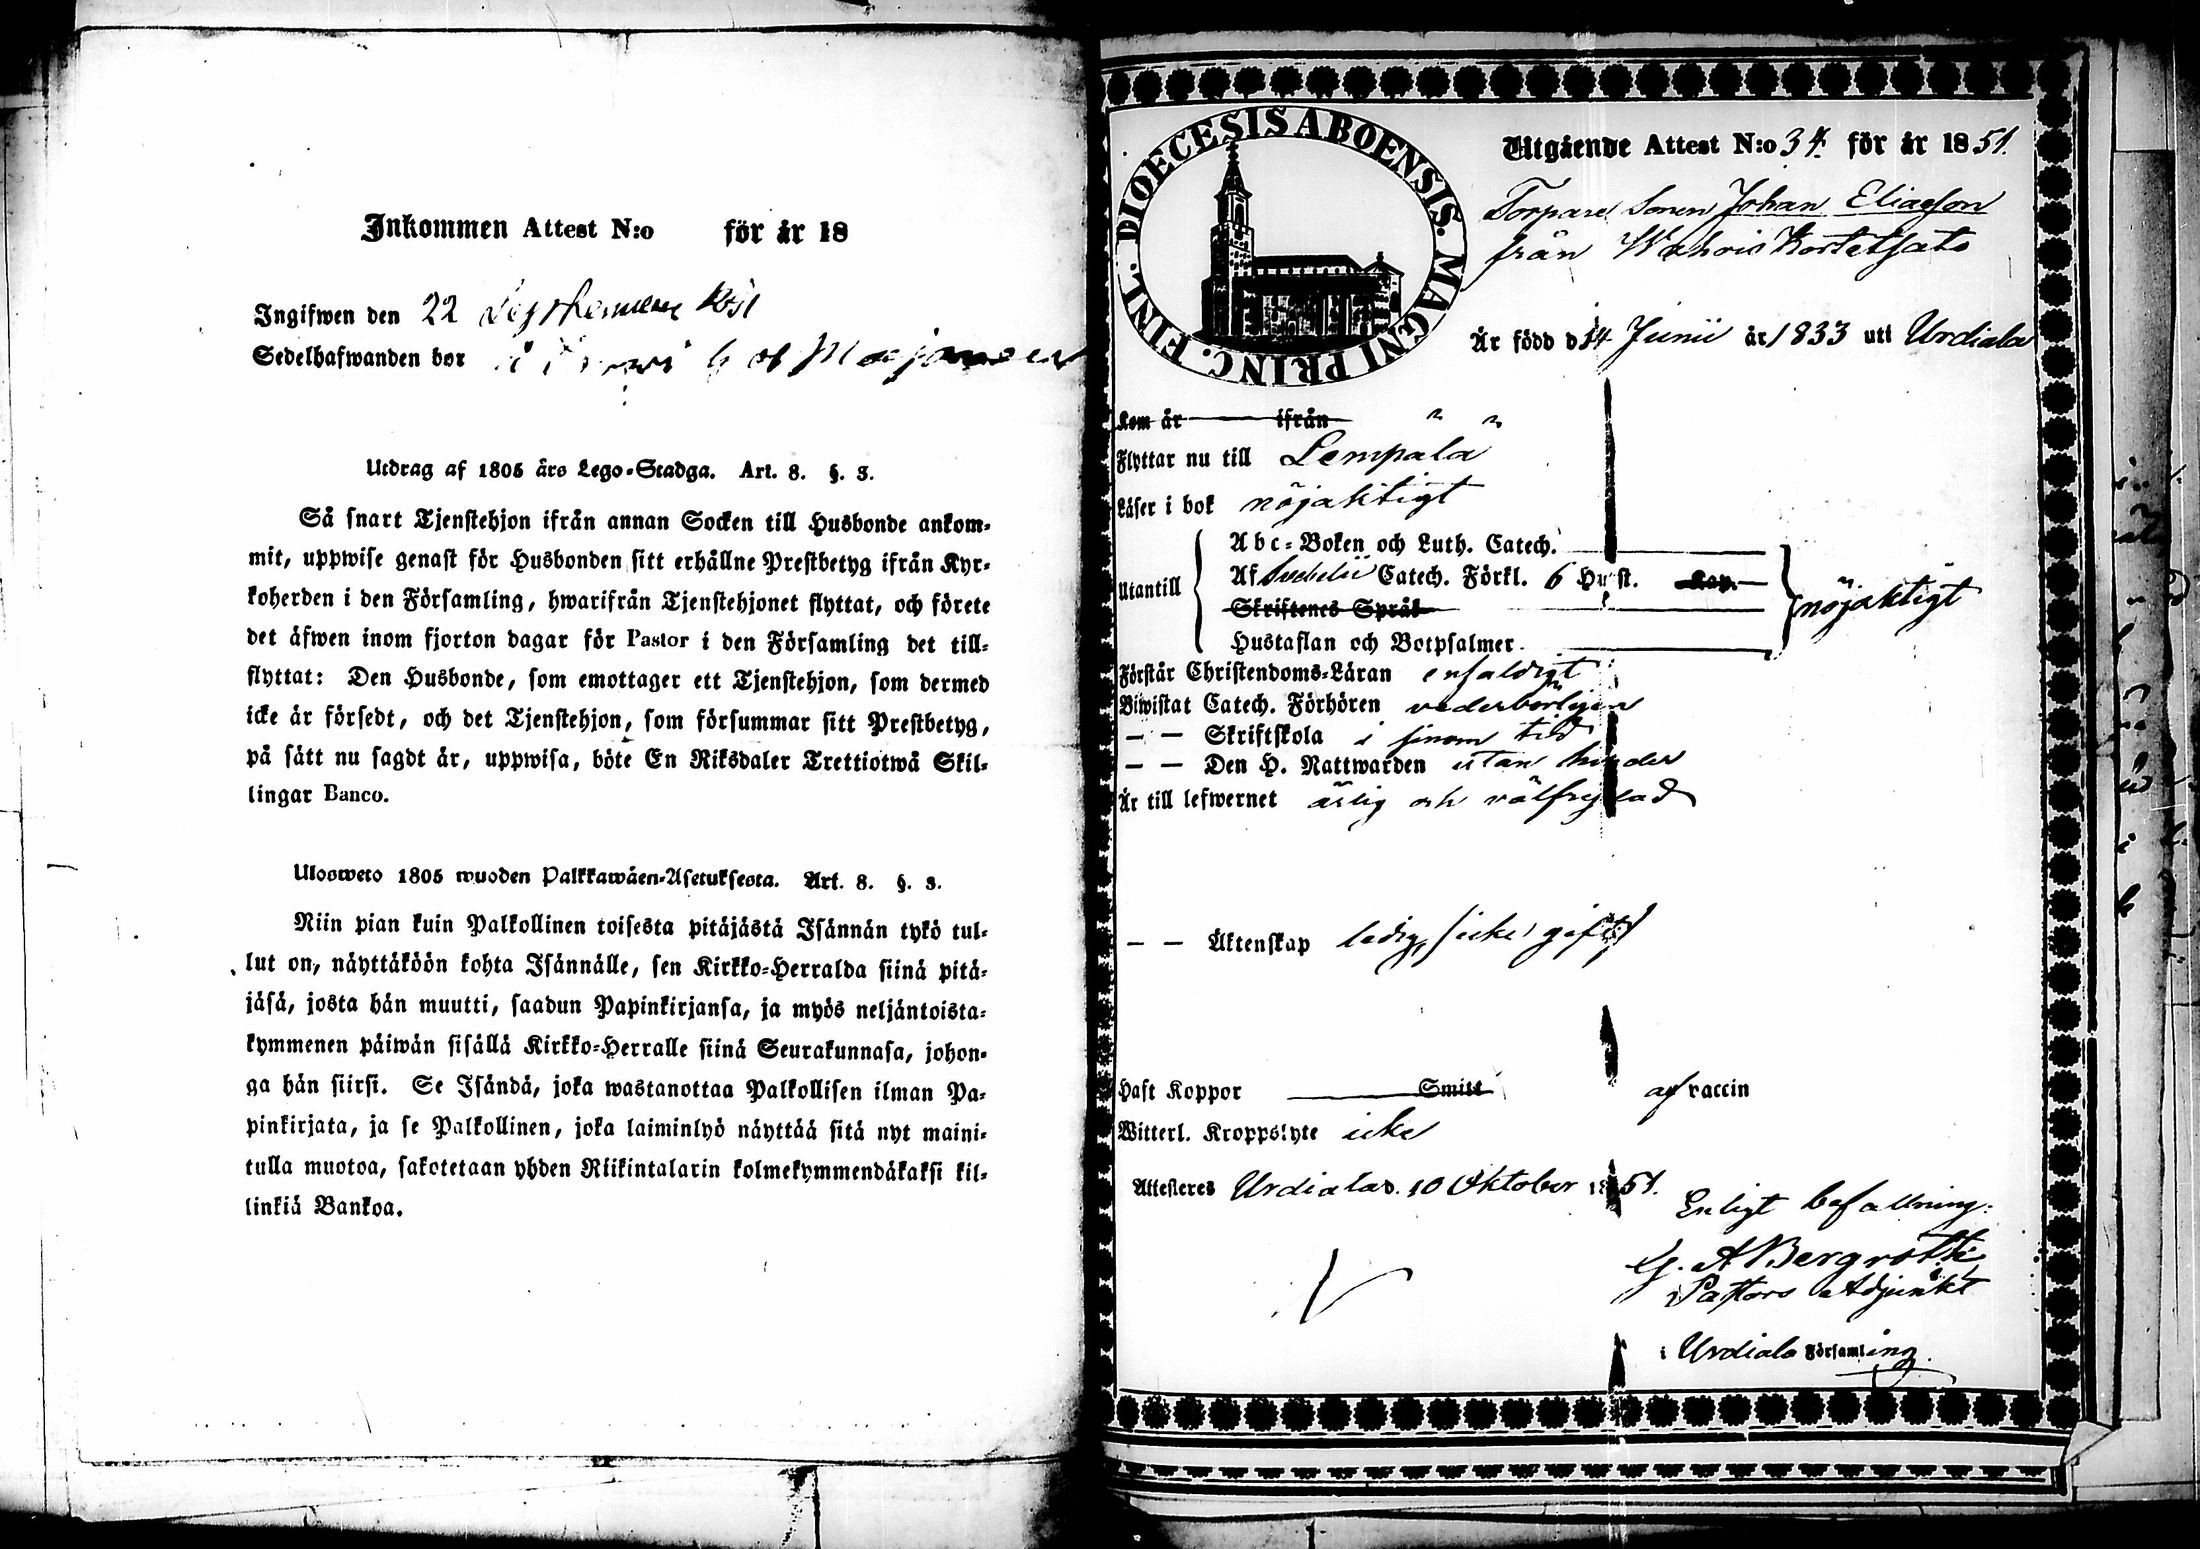 Inkommen Attest N:o för år 18
Ingifwen den 22
Sedelhafwanden bor
Utdrag af 1805 års Lego-Stadga. Art. 8. §. 3.
Så snart Tjenstehjon ifrån annan Socken till Husbonde ankom-
mit, uppwise genast för Husbonden sitt erhållne Prestbetyg ifrån Kyr-
koherden i den Församling, hwarifrån Tjenstehjonet flyttat, och förete
det äfwen inom fjorton dagar för Pastor i den Församling det till-
flyttat: Den Husbonde, som emottager ett Tjenstehjon, som dermed
icke är försedt, och det Tjenstehjon, som försummar sitt Prestbetyg,
på sätt nu sagdt är, uppwisa, böte En Riksdaler Trettiotwå Skil-
lingar Banco.
Ulosweto 1805 wuoden Palkkawäen-Asetuksesta. Art. 8. §. 3.
Niin pian kuin Palkollinen toisesta pitäjästä Isännän tykö tul-
lut on, näyttäköön kohta Isännälle, sen Kirkko-Herralda siinä pitä-
jäsä, josta hän muutti, saadun Papinkirjansa, ja myös neljäntoista-
kymmenen päiwän sisällä Kirkko-Herralle siinä Seurakunnasa, johon-
ga hän siirsi. Se Isändä, joka wastanottaa Palkollisen ilman Pa-
pinkirjata, ja se Palkollinen, joka laiminlyö näyttää sitä nyt maini-
tulla muotoa, sakotetaan yhden Riikintalarin kolmekymmendäkaksi kil-
linkiä Bankoa.
DIOECESIS ABOENSIS. MAGNI PRINC. FINL.
Utgående Attest N:o 34. för år 1851.
Torpare Sonen Johan Eliasson
från
Är född d. 14 Junii år 1833 uti Urdiala
Kom år ifrån
Flyttar nu till Lempälä
Läser i bok nöjaktigt
Utantill
Abc-Boken och Luth. Catech.
Af Svebelii Catech. Förkl. 6 Hufst. Kap.
Skriftenes Språk
Hustaflan och Botpsalmer
nöjaktigt
Förstår Christendoms-Läran enfaldigt
Biwistat Catech. Förhören vederbörligen
— — Skriftskola i sinom tid
— — Den H. Nattwarden utan hinder
Är till lefwernet ärlig och välfrejdad
— — Äktenskap ledig, (icke gift)
Haft Koppor Smitt af vaccin
Witterl. Kroppslyte icke
Attesteres Urdiala d. 10 Oktober 1851.
Enligt befallning:
G. A Bergroth
Pastors Adjunkt
i Urdiala Församling